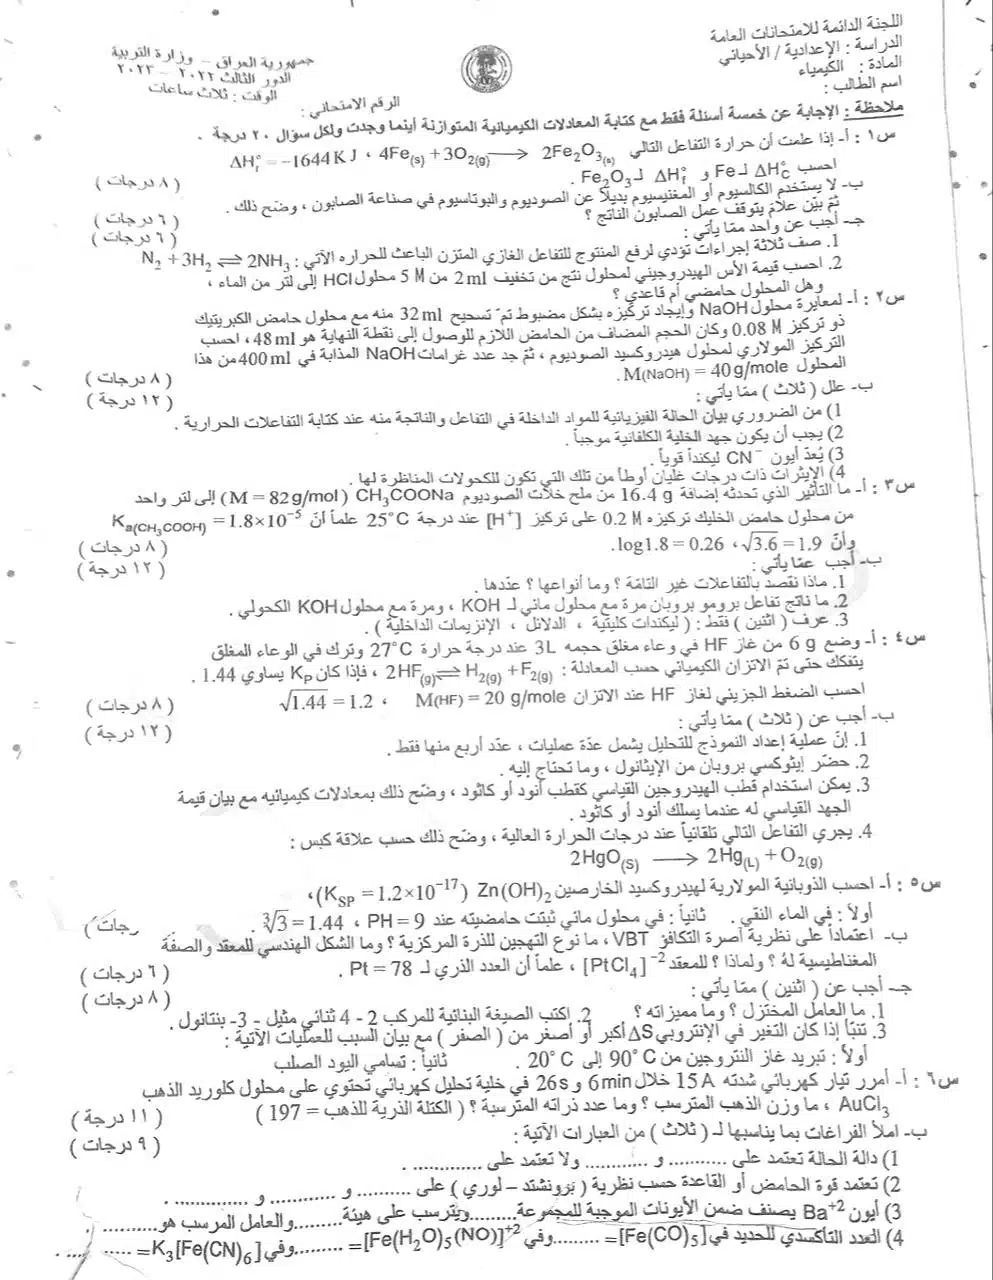 اللجنة الدائمة للامتحانات العامة
الدراسة : الإعدادية / الأحيائي
المادة : الكيمياء
اسم الطالب :
جمهورية العراق - وزارة التربية
الدور الثالث ٢٠٢٢ - ٢٠٢٣
الوقت : ثلاث ساعات
الرقم الامتحاني :
ملاحظة : الإجابة عن خمسة أسئلة فقط مع كتابة المعادلات الكيميائية المتوازنة أينما وجدت ولكل سؤال ٢٠ درجة .
س١ : أ- إذا علمت أن حرارة التفاعل التالي 4Fe(s) + 3O2(g) ⟶ 2Fe2O3(s) ، ΔH°r = −1644 KJ
احسب ΔH°C لـ Fe و ΔH°f لـ Fe2O3 . ( ٨ درجات )
ب- لا يستخدم الكالسيوم أو المغنيسيوم بديلاً عن الصوديوم والبوتاسيوم في صناعة الصابون ، وضح ذلك .
ثمّ بيّن علامَ يتوقف عمل الصابون الناتج ؟ ( ٦ درجات )
جـ- أجب عن واحد ممّا يأتي : ( ٦ درجات )
1. صف ثلاثة إجراءات تؤدي لرفع المنتوج للتفاعل الغازي المتزن الباعث للحراره الآتي : N2 + 3H2 ⇌ 2NH3
2. احسب قيمة الأس الهيدروجيني لمحلول نتج من تخفيف 2 ml من 5 M محلول HCl إلى لتر من الماء ،
وهل المحلول حامضي أم قاعدي ؟
س٢ : أ- لمعايرة محلول NaOH وإيجاد تركيزه بشكل مضبوط تمّ تسحيح 32 ml منه مع محلول حامض الكبريتيك
ذو تركيز 0.08 M وكان الحجم المضاف من الحامض اللازم للوصول إلى نقطة النهاية هو 48 ml ، احسب
التركيز المولاري لمحلول هيدروكسيد الصوديوم ، ثمّ جد عدد غرامات NaOH المذابة في 400 ml من هذا
المحلول M(NaOH) = 40 g/mole . ( ٨ درجات )
ب- علل ( ثلاث ) ممّا يأتي : ( ١٢ درجة )
1) من الضروري بيان الحالة الفيزيائية للمواد الداخلة في التفاعل والناتجة منه عند كتابة التفاعلات الحرارية .
2) يجب أن يكون جهد الخلية الكلفانية موجباً .
3) يُعدّ أيون CN⁻ ليكنداً قوياً .
4) الإيثرات ذات درجات غليان أوطأ من تلك التي تكون للكحولات المناظرة لها .
س٣ : أ- ما التأثير الذي تحدثه إضافة 16.4 g من ملح خلات الصوديوم CH3COONa (M = 82 g/mol) إلى لتر واحد
من محلول حامض الخليك تركيزه 0.2 M على تركيز [H⁺] عند درجة 25°C علماً أنّ Ka(CH3COOH) = 1.8×10⁻⁵
وأنّ √3.6 = 1.9 ، log1.8 = 0.26. ( ٨ درجات )
ب- أجب عمّا يأتي : ( ١٢ درجة )
1. ماذا نقصد بالتفاعلات غير التامّة ؟ وما أنواعها ؟ عدّدها .
2. ما ناتج تفاعل برومو بروبان مرة مع محلول مائي لـ KOH ، ومرة مع محلول KOH الكحولي .
3. عرف ( اثنين ) فقط : ( ليكندات كليتية ، الدلائل ، الإنزيمات الداخلية ) .
س٤ : أ- وضع 6 g من غاز HF في وعاء مغلق حجمه 3L عند درجة حرارة 27°C وترك في الوعاء المغلق
يتفكك حتى تمّ الاتزان الكيميائي حسب المعادلة : 2HF(g) ⇌ H2(g) + F2(g) ، فإذا كان KP يساوي 1.44 .
احسب الضغط الجزيئي لغاز HF عند الاتزان M(HF) = 20 g/mole ، √1.44 = 1.2 ( ٨ درجات )
ب- أجب عن ( ثلاث ) ممّا يأتي : ( ١٢ درجة )
1. إنّ عملية إعداد النموذج للتحليل يشمل عدّة عمليات ، عدّد أربع منها فقط .
2. حضّر إيثوكسي بروبان من الإيثانول ، وما تحتاج إليه .
3. يمكن استخدام قطب الهيدروجين القياسي كقطب أنود أو كاثود ، وضّح ذلك بمعادلات كيميائيه مع بيان قيمة
الجهد القياسي له عندما يسلك أنود أو كاثود .
4. يجري التفاعل التالي تلقائياً عند درجات الحرارة العالية ، وضح ذلك حسب علاقة كبس :
2HgO(S) ⟶ 2Hg(L) + O2(g)
س٥ : أ- احسب الذوبانية المولارية لهيدروكسيد الخارصين Zn(OH)2 (KSP = 1.2×10⁻¹⁷)،
أولاً : في الماء النقي . ثانياً : في محلول مائي ثبتت حامضيته عند PH = 9 ، ∛3 = 1.44 . جات )
ب- اعتماداً على نظرية آصرة التكافؤ VBT ، ما نوع التهجين للذرة المركزية ؟ وما الشكل الهندسي للمعقد والصفة
المغناطيسية لهُ ؟ ولماذا ؟ للمعقد [PtCl4]⁻² ، علماً أن العدد الذري لـ Pt = 78 . ( ٦ درجات )
جـ- أجب عن ( اثنين ) ممّا يأتي : ( ٨ درجات )
1. ما العامل المختزل ؟ وما مميزاته ؟ 2. اكتب الصيغة البنائية للمركب 2 - 4 ثنائي مثيل - 3- بنتانول .
3. تنبّأ إذا كان التغير في الإنتروبي ΔS أكبر أو أصغر من ( الصفر ) مع بيان السبب للعمليات الآتية :
أولاً : تبريد غاز النتروجين من 90°C إلى 20°C . ثانياً : تسامي اليود الصلب
س٦ : أ- أمرر تيار كهربائي شدته 15 A خلال 6 min و 26 s في خلية تحليل كهربائي تحتوي على محلول كلوريد الذهب
AuCl3 ، ما وزن الذهب المترسب ؟ وما عدد ذراته المترسبة ؟ ( الكتلة الذرية للذهب = 197 ) ( ١١ درجة )
ب- املأ الفراغات بما يناسبها لـ ( ثلاث ) من العبارات الآتية : ( ٩ درجات )
1) دالة الحالة تعتمد على ........... و ........... ولا تعتمد على ............. .
2) تعتمد قوة الحامض أو القاعدة حسب نظرية ( برونشتد – لوري ) على .......... و ............ و ............. .
3) أيون Ba⁺² يصنف ضمن الأيونات الموجبة للمجموعة..........ويترسب على هيئة..........والعامل المرسب هو...........
4) العدد التأكسدي للحديد في [Fe(CO)5]= ..........وفي [Fe(H2O)5(NO)]⁺²= ..........وفي K3[Fe(CN)6]= ..........